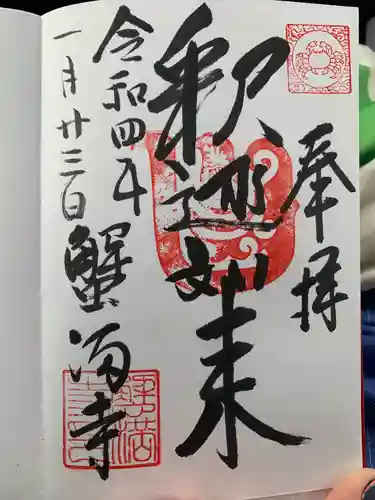 奉拝
釈迦如来
令和四年
一月廿三日
蟹満寺